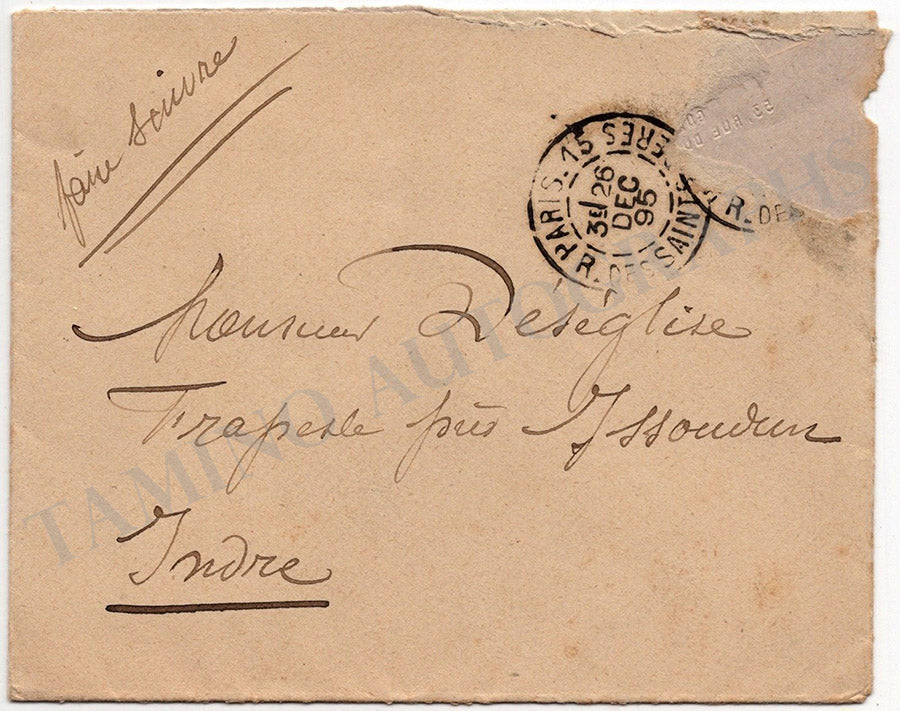 faire suivre
PARIS. 15 R. DES SAINTS PERES
3E 26
DEC
95
R. DES
Monsieur Déséglise
Frapesle près Issoudun
Indre
TAMINO AUTOGRAPHS